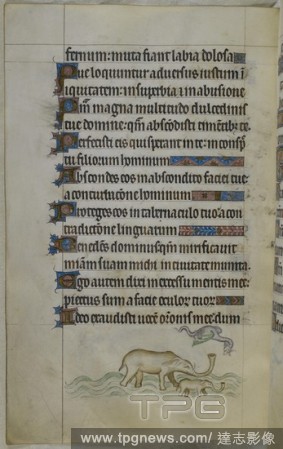 fernum: muta fiant labia dolosa
Que loquuntur adversus iustum i
iquitatem: in superbia & in abusione
Qm magna multitudo dulcedinis
tue domine: qm abscōdisti timētibȝ te.
Perfecisti eis qui sperant in te: in consp̄
tu filiorum hominum
Abscondes eos in abscondito faciei tue
a conturbatione hominum
Proteges eos in tabernaculo tuo: a con
tradictione linguarum
dominus qm mirificavit
miām suam michi in civitate munita.
Ego autem dixi in excessu mentis mee:
proiectus sum a facie oculor tuor
Ideo exaudisti vocē orōnis mee: dum
TPG
www.tpgnews.com/ 達志影像